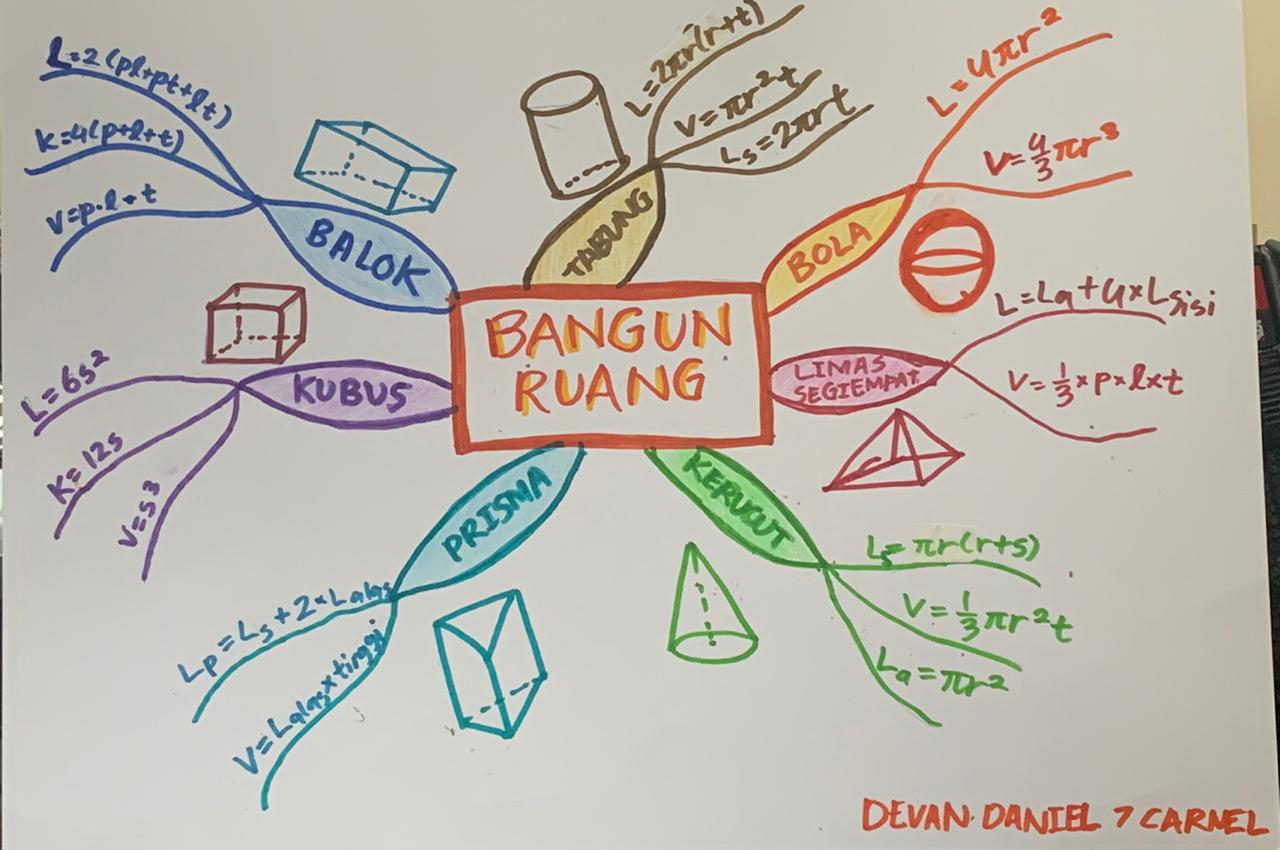 BANGUN
RUANG
BALOK
L=2(pl+pt+lt)
K=4(p+l+t)
V=p.l.t
TABUNG
L=2πr(r+t)
V=πr²t
Ls=2πrt
BOLA
L=4πr²
V=4/3πr³
LIMAS
SEGIEMPAT
L=La+4×Lsisi
V=1/3×p×l×t
KERUCUT
Ls=πr(r+s)
V=1/3πr²t
La=πr²
PRISMA
Lp=Ls+2×Lalas
V=Lalas×tinggi
KUBUS
L=6s²
K=12s
V=s³
DEVAN DANIEL 7 CARMEL